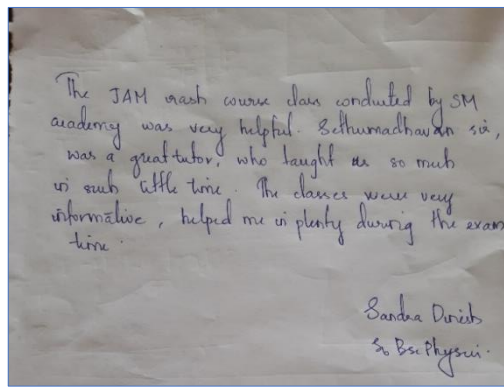 The JAM crash course class conducted by SM
academy was very helpful. Sethumadhavan sir,
was a great tutor, who taught us so much
in such little time. The classes were very
informative, helped me in plenty during the exam
time.
Sandra Dinesh
S6 Bsc Physics.